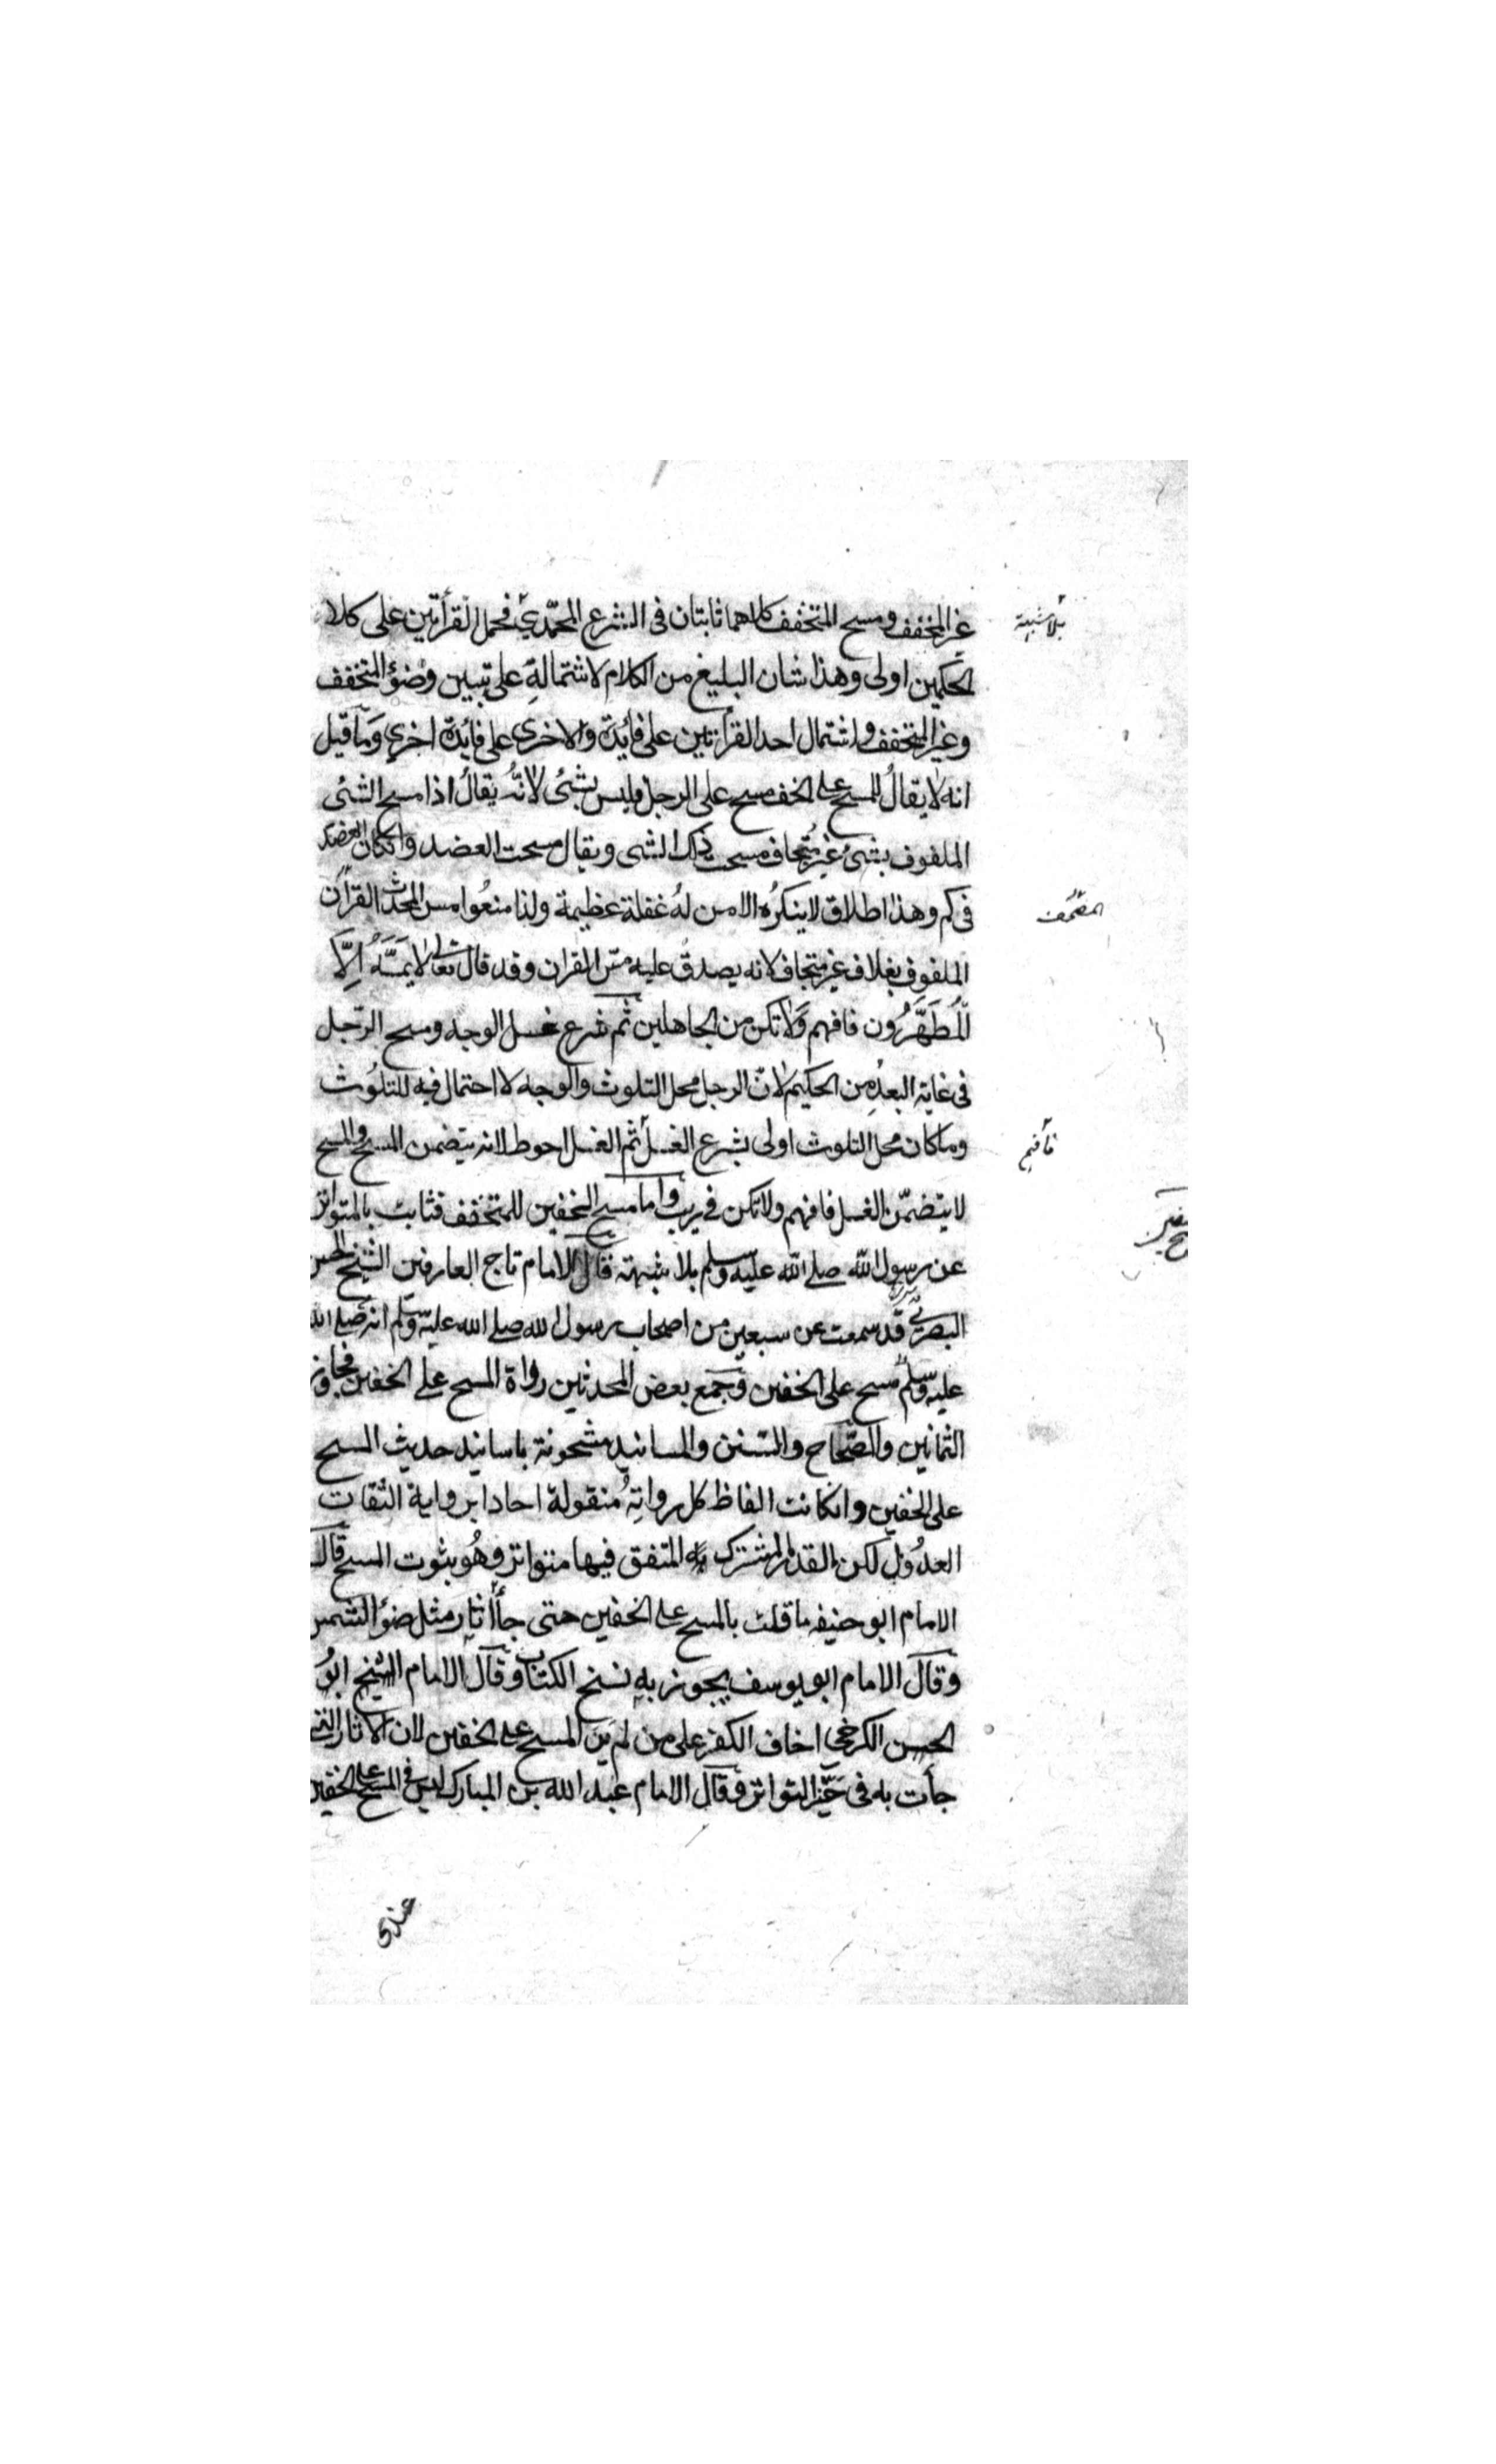 غير المخفف ومسح المتخفف كلاهما ثابتان فى الشرع المحمّدي فحمل القرأتين على كلا
الحكمين اولى وهذا شان البليغ من الكلام لاشتمالهِ على تبيين وضؤ المتخفف
وغير المتخفف واشتمال احد القرأتين على فائدة والاخرى على فائدة اخرى وما قيل
انه لا يقالُ للمسح على الخف مسح على الرجل فليس بشئ لانّهُ يقالُ اذا مسح الشئ
الملفوف بشئ غير متجاف مسحت ذلك الشى ويقال مسحت العضد وانكان العضد
فى كم وهذا اطلاق لا ينكرُه الا من لهُ غفلة عظيمة ولذا منعُوا مس المحدث القرآن
الملفوف بغلاف غير متجاف لانه يصدق عليه مسّ القران وقد قال تعالى لا يَمَسُّهُ اِلَّا
الْمُطَهَّرُون فافهم وَلا تكن من الجاهلين ثم شرع غسل الوجه ومسح الرّجل
فى غاية البعدِ من الحكيم لانّ الرجل محل التلوث والوجه لا احتمال فيه للتلوُث
وما كان محل التلوث اولى بشرع الغسل ثم الغسل احوط لانه يتضمن المسح والمسح
لا يتضمّن الغسل فافهم ولا تكن فى ريب واما مسح الخفين للمتخفف فثابت بالمتواتر
عن رسول الله صلى الله عليه وسلم بلا شبهة قال الامام تاج العارفين الشيخ الحسن
البصرى قد سمعت عن سبعين من اصحاب رسول الله صلى الله عليه وسلم انه صلى الله
عليه وسلم مسح على الخفين وجمع بعض المحدثين رواة المسح على الخفين فجاوز
الثمانين والصّحاح والسّنن والمسانيد مشحونة باسانيد حديث المسح
على الخفين وانكانت الفاظ كل رواتِهُ منقولة احادا برواية الثقات
العدُوْل لكن القدر المشترك به المتفق فيها متواتر وهُو بثوت المسح قال
الامام ابو حنيفه ما قلت بالمسح على الخفين حتى جأ اثار مثل ضؤ الشمس
وقال الامام ابو يوسف يجوز بهِ نسخ الكتاب وقال الامام الشيخ ابوُ
الحسن الكرخى اخاف الكفر على من لم يَرَ المسح على الخفين لان الاثار التى
جأت به فى حيّز التواتر وقال الامام عبد الله بن المبارك ليس فى المسح على الخفين
عندى